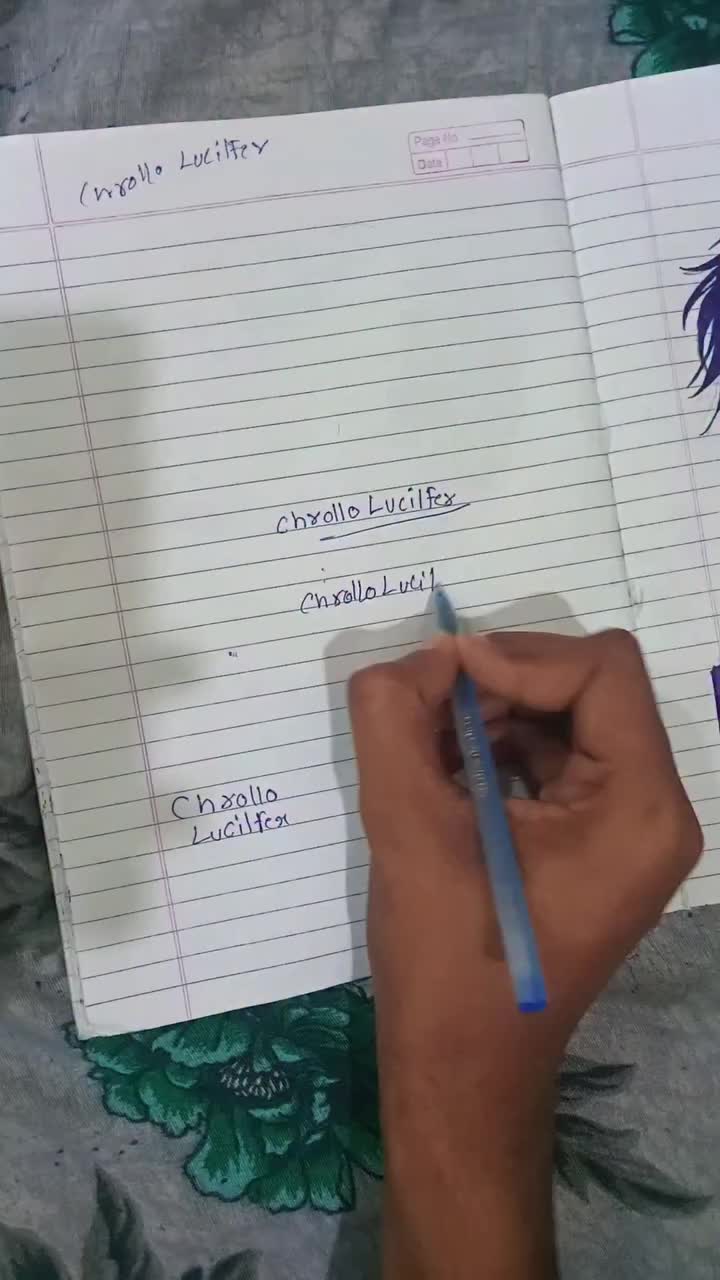 Chrollo Lucilfer
Page No
Date
Chrollo Lucilfer
Chrollo Lucil
Chrollo
Lucilfer